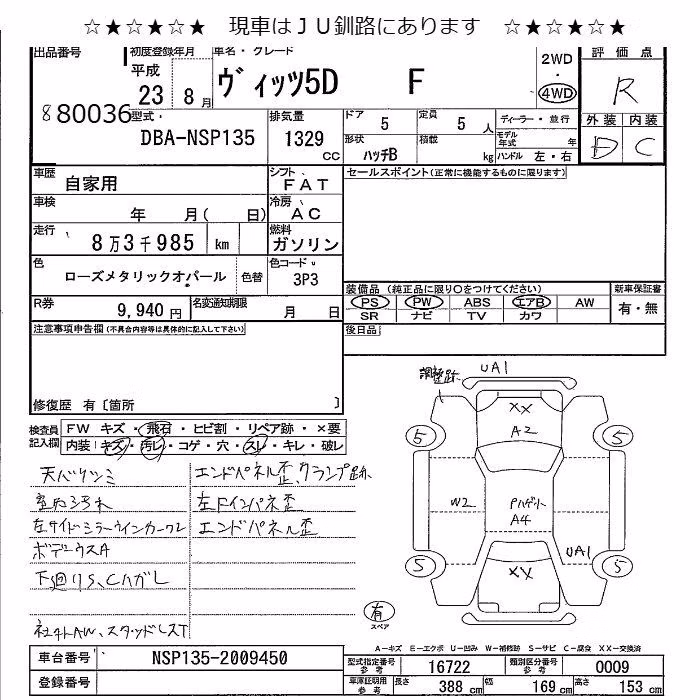 ☆★☆★☆★ 現車はＪＵ釧路にあります ☆★☆★☆★
出品番号 初度登録年月 車名・グレード 2WD 評価点
880036 平成 23 8月 ヴィッツ5D F ・ 4WD R
型式 DBA-NSP135 排気量 1329 CC
ドア 5 定員 5人 ディーラー・並行 外装 内装
形状 ハッチB 積載 kg モデル年式 年 D C
ハンドル 左・右
車歴 自家用 シフト FAT セールスポイント(正常に機能するものに限ります)
車検 年 月( 日) 冷房 AC
走行 8万3千985 km 燃料 ガソリン
色 ローズメタリックオパール 色替 色コード 3P3
装備品 (純正品に限り○をつけてください) 新車保証書
R券 9,940円 名変通知期限 月 日
PS PW ABS エアB AW 有・無
SR ナビ TV カワ
注意事項申告欄(不具合内容等は具体的に記入して下さい) 後日品
修復歴 有〔箇所 〕
検査員記入欄 FW キズ・飛石・ヒビ割・リペア跡・×要
内装:キズ・汚レ・コゲ・穴・スレ・キレ・破レ
天バリツミ エンドパネル歪、クランプ跡
室内汚れ 左Fインパネ歪
左サイドミラーウインカークレ エンドパネル歪
ボデーウスA
下廻りS、Cハガレ
社外AW、スタッドレスT
調整跡 UA1
XX
A2
5 5
W2 Pハゲット A4
UA1
5 5
XX
有
スペア
A-キズ E-エクボ U-凹み W-補修跡 S-サビ C-腐食 XX-交換済
車台番号 NSP135-2009450 型式指定番号 参考 16722 類別区分番号 参考 0009
登録番号 車庫証明用 参考 長さ 388cm 幅 169cm 高さ 153cm